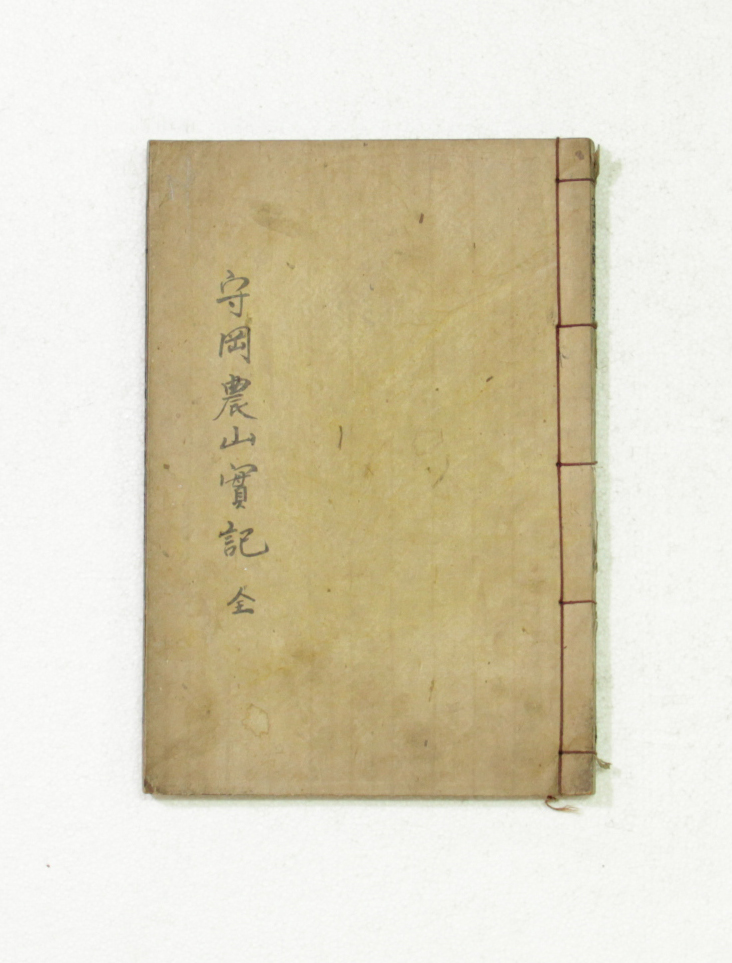 守岡農山實記 全